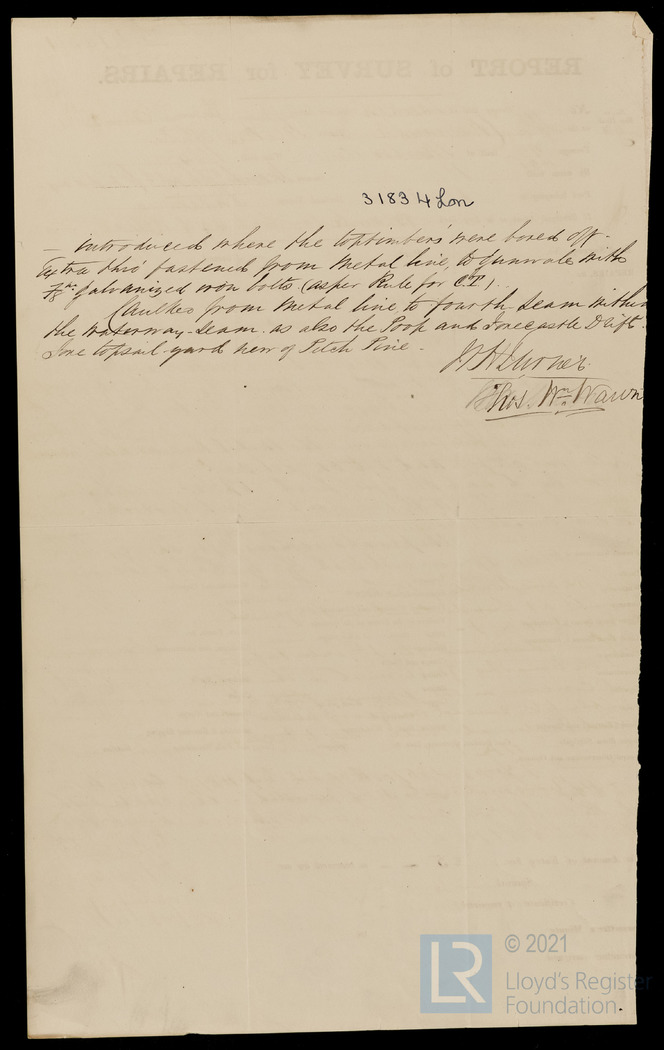 31834 Lon
— introduced where the toptimbers were bored off —
Extra thro' fastened from Metal line, to Gunwale with
galvanized iron bolts (as per Rule for C.T.).
Caulked from Metal line to fourth Seam within
the waterway Seam. as also the Poop and Forecastle Drift.
Fore topsail yard new of Pitch Pine —
Thos. Wm. Wawn
© 2021
LR
Lloyd's Register
Foundation.